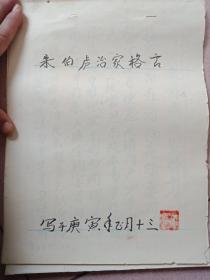 朱伯卢治家格言
写于庚寅年正月十三